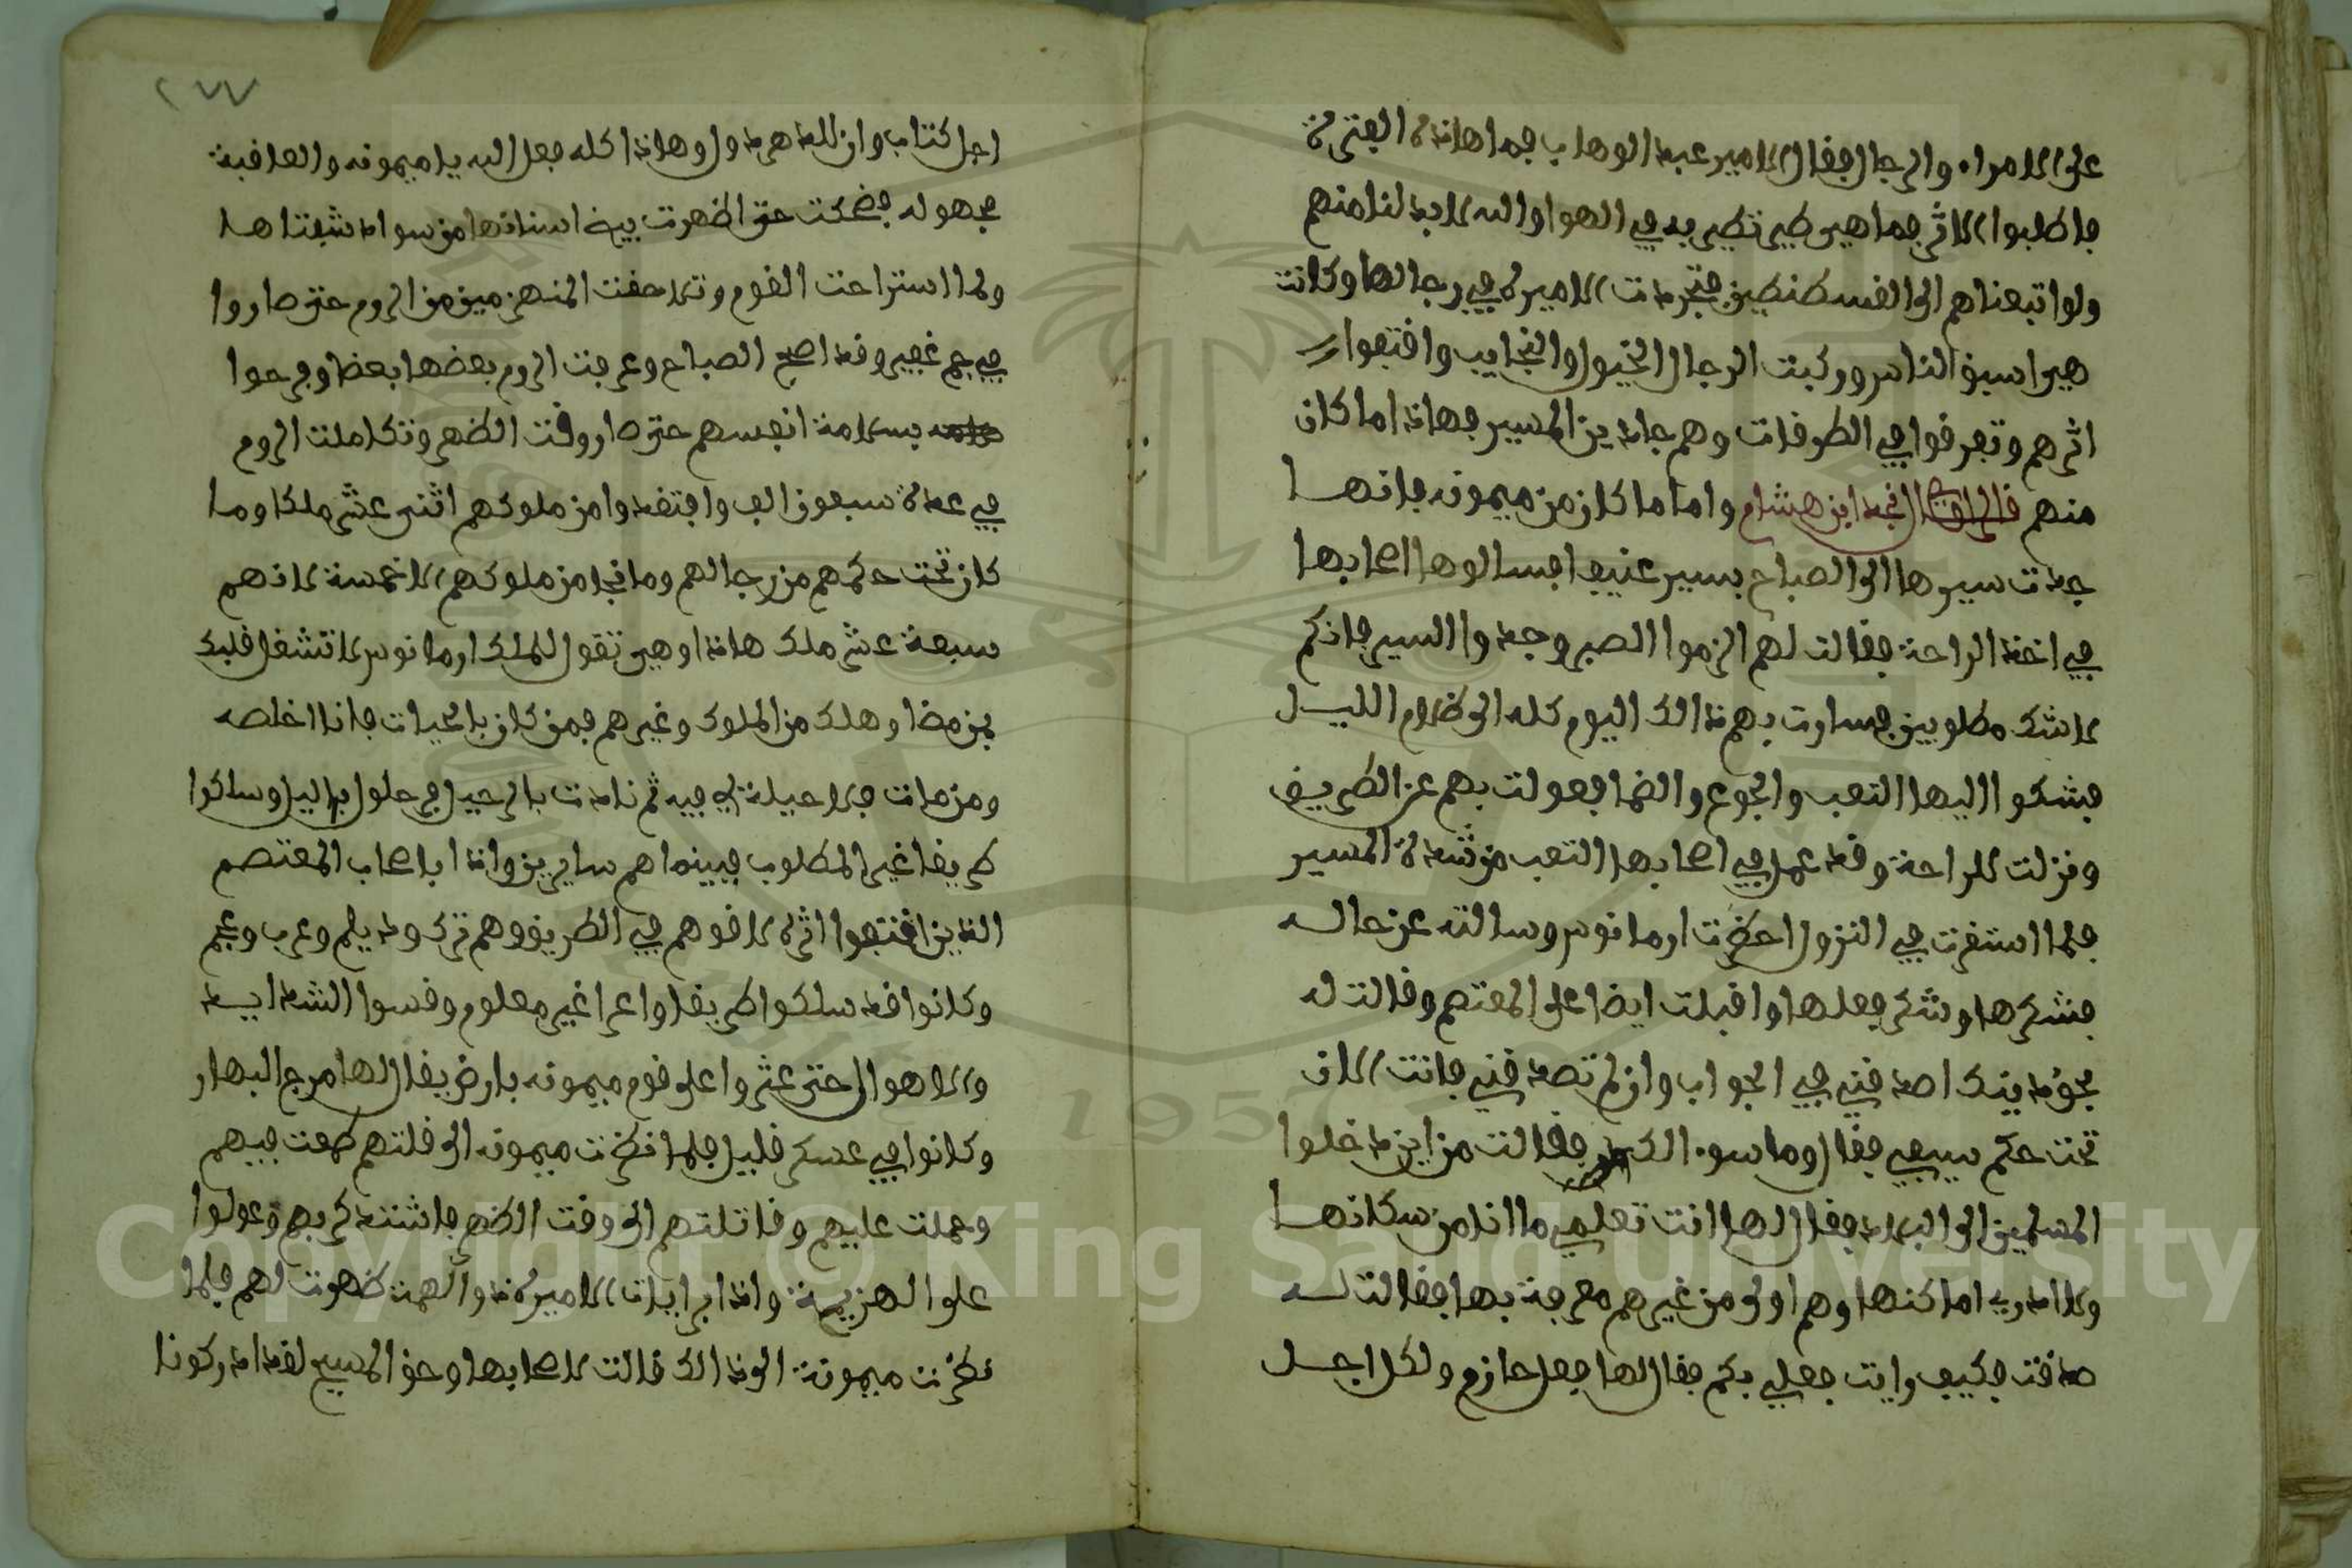 على الامراء والرجال فقال الامير عبد الوهاب فما هاذه الفترة
فاطلبوا الاثر فما هي طير تطير به في الهوا والله لا بد لنا منهم
ولو اتبعناهم الى القسطنطين فتجردت الاميرة في رجالها وكانت
هي اسبق الناس وركبت الرجال الخيول والنجايب واقتفوا
اثرهم وتفرقوا في الطرقات وهم جادين المسير فهاذا ما كان
منهم قال الراوي نجد ابن هشام واما ما كان من ميمونه فانها
جدت سيرها الى الصباح بسير عنيف فسالوها اصحابها
في اخذ الراحة فقالت لهم الزموا الصبر وجدوا السير فانكم
لا شك مطلوبين فسارت بهم ذالك اليوم كله الى ظلام الليل
فشكوا اليها التعب والجوع والضما فعولت بهم عن الطريق
ونزلت للراحة وقد عمل في اصحابها التعب من شدة المسير
فلما استقرت في النزول احضرت ارمانوس وسالته عن حاله
فشكرها وشكر فعلها واقبلت ايضا على المعتصم وقالت له
بحق دينك اصدقني في الجواب وان لم تصدقني فانت الان
تحت حكم سيفي فقال وما سوء الك فقالت من اين دخلوا
المسلمين الى البلاد فقال لها انت تعلمي ما انا من سكانها
ولا ادري اماكنها وهم اولى من غيرهم معرفة بها فقالت له
صدقت فكيف رايت فعلي بكم فقال لها فعل حازم ولكل اجل
٢٧٧
اجل كتاب وان للدهر دول وهاذا كله فعل الله يا ميمونه والعاقبة
مجهوله فضحكت حتى اظهرت بيض اسنانها من سواد شفتاها
ولما استراحت القوم وتلاحقت المنهزمين من الروم حتى صاروا
في جم غفير وقد اصبح الصباح وعرفت الروم بعضها بعضا وفرحوا
بسلامة انفسهم حتى صار وقت الظهر وتكاملت الروم
في عدة سبعون الف وافتقدوا من ملوكهم اثنى عشر ملكا وما
كان تحت حكمهم من رجالهم وما نجا من ملوكهم الا خمسة لانهم
سبعة عشر ملك هاذا وهي تقول للملك ارمانوس لا تشغل قلبك
بمن مضا وهلك من الملوك وغيرهم فمن كان بالحيات فانا اخلصه
ومن مات فلا حيلة لي فيه ثم نادت بالرحيل فرحلوا بالليل وسلكوا
طريقا غير المطلوب فبينما هم سايرين واذا باصحاب المعتصم
الذين اقتفوا اثره لاقوهم في الطريق وهم ترك وديلم وعرب وعجم
وكانوا قد سلكوا طريقا واعرا غير معلوم وقسوا الشدايد
والاهوال حتى عثروا على قوم ميمونه بارض يقال لها مرج البهار
وكانوا في عسكر قليل فلما نظرت ميمونه الى قلتهم طمعت فيهم
وحملت عليهم وقاتلتهم الى وقت الظهر فاشتد كربهم وعولوا
على الهزيمة واذا برايات الاميرة ذو الهمة ظهرت لهم فلما
نظرت ميمونة الى ذالك قالت لاصحابها وحق المسيح لقد ادركونا